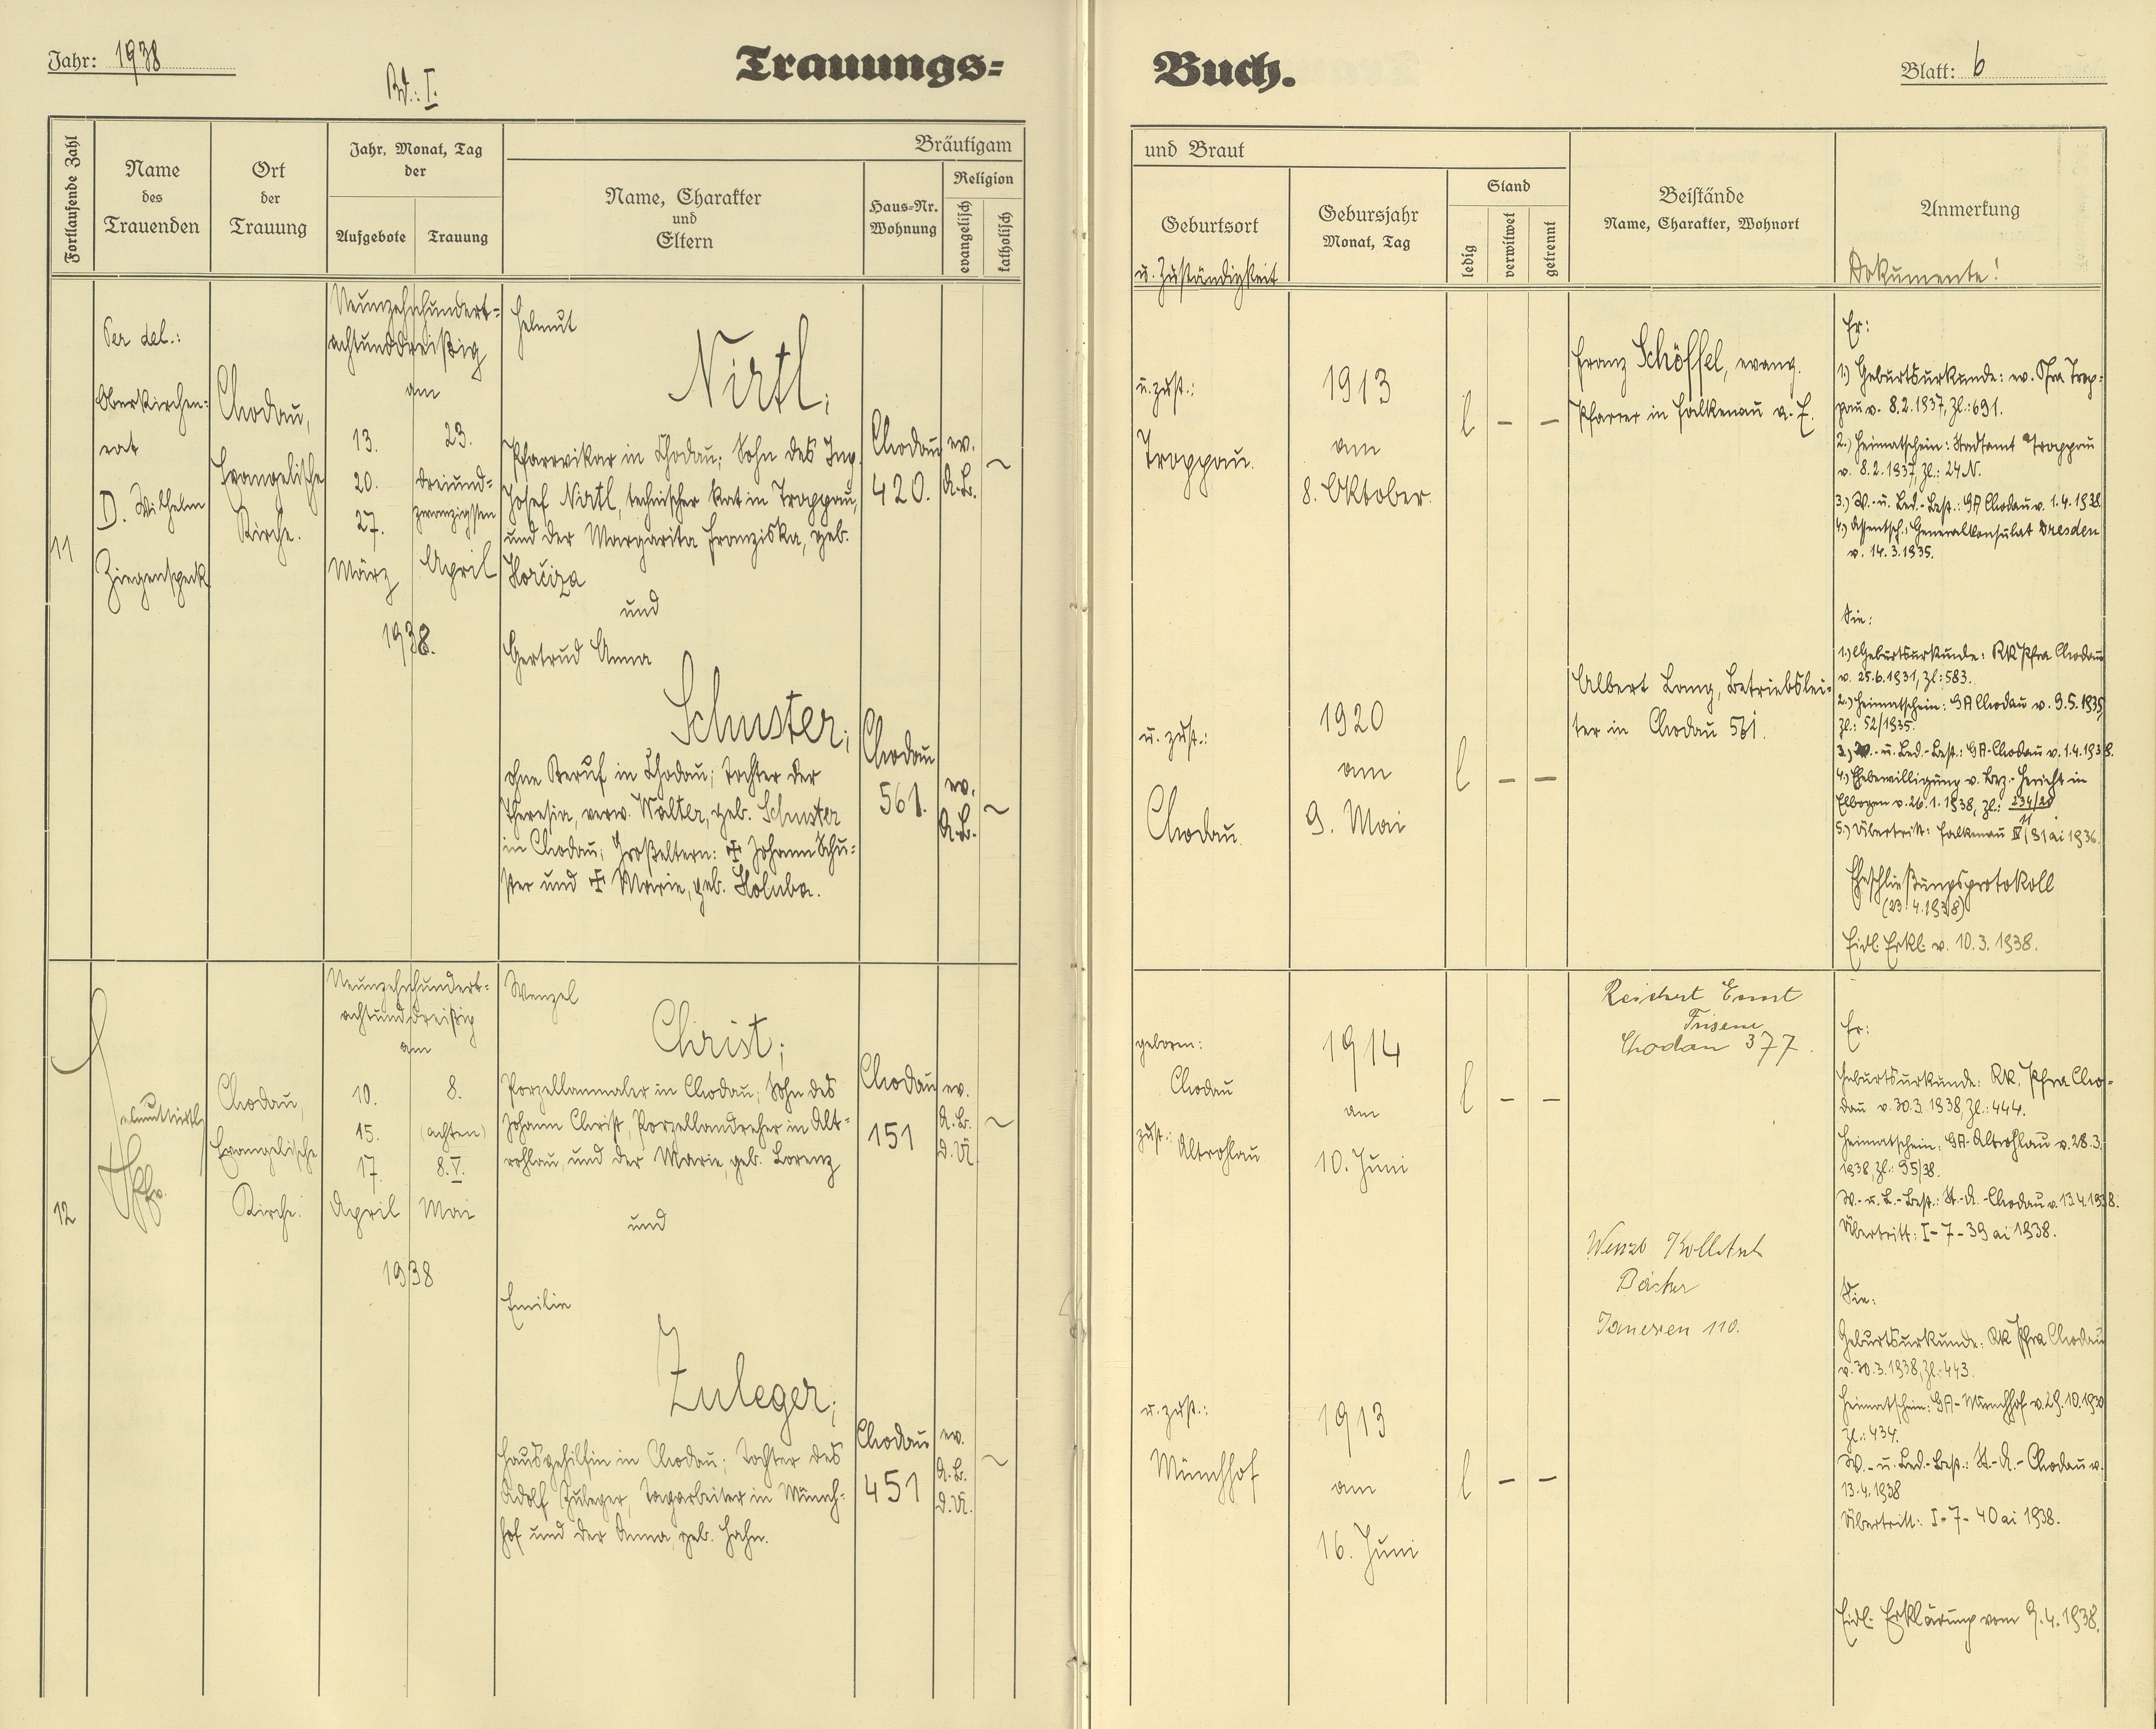 Jahr: 1938
Bd.: I.
Trauungs=
Buch.
Blatt: 6
Fortlaufende Zahl
Name
des
Trauenden
Ort
der
Trauung
Jahr, Monat, Tag
der
Aufgebote
Trauung
Bräutigam
Name, Charakter
und
Eltern
Haus=Nr.
Wohnung
Religion
evangelisch
katholisch
und Braut
Geburtsort
u. Zuständigkeit
Gebursjahr
Monat, Tag
Stand
ledig
verwitwet
getrennt
Beistände
Name, Charakter, Wohnort
Anmerkung
Dokumente!
11
Per del.:
Oberkirchen=
rat
D. Wilhelm
Ziegenspeck
Chodau,
Evangelische
Kirche.
Neunzehnhundert=
achtunddreißig
am
13.
20.
27.
März
23.
dreiund=
zwanzigsten
April
1938.
Helmut
Nirtl;
Pfarrvikar in Chodau; Sohn des Ing.
Josef Nirtl, technischer Rat in Troppau,
und der Margarita Franziska, geb.
Horčiza
und
Gertrud Anna
Schuster;
ohne Beruf in Chodau; Tochter der
Theresia, verw. Walter, geb. Schuster
in Chodau; Großeltern: ✠ Johann Schu=
ster und ✠ Marie, geb. Holuba.
Chodau
420.
ev.
A.B.
~
Chodau
561.
ev.
A.B.
~
u. zust.:
Troppau.
1913
am
8. Oktober.
l – –
Franz Schöffel, evang.
Pfarrer in Falkenau a. E.
u. zust.:
Chodau.
1920
am
9. Mai
l – –
Albert Lang, Betriebslei=
ter in Chodau 561.
Er:
1.) Geburtsurkunde: ev. Pfra Trop=
pau v. 8.2.1937, Zl.: 691.
2.) Heimatschein: Stadtamt Troppau
v. 8.2.1937, Zl.: 24 N.
3.) W.- u. Led.-Best.: GA Chodau v. 1.4.1938.
4.) Assentsch.: Generalkonsulat Dresden
v. 14.3.1935.
Sie:
1.) Geburtsurkunde: RK Pfra Chodau
v. 25.6.1931, Zl: 583.
2.) Heimatschein: GA Chodau v. 9.5.1935,
Zl.: 52/1935.
3.) W.- u. Led.-Best.: GA-Chodau v. 1.4.1938.
4.) Ehebewilligung v. Bez.-Gericht in
Elbogen v. 26.1.1938, Zl.: 234/20
11
5.) Übertritt: Falkenau IV, 91 ai 1936.
Eheschließungsprotokoll
(23.4.1938)
Eidl. Erkl. v. 10.3.1938.
12
Chodau,
Evangelische
Kirche.
Neunzehnhundert=
achtunddreißig
am
10.
15.
17.
April
8.
(achten)
8.V.
Mai
1938
Wenzel
Christ;
Porzellanmaler in Chodau; Sohn des
Johann Christ, Porzellandreher in Alt=
rohlau, und der Marie, geb. Lorenz
und
Emilie
Zuleger;
Hausgehilfin in Chodau; Tochter des
Adolf Zuleger, Tagarbeiter in Münch=
hof und der Anna, geb. Hahn.
Chodau
151
ev.
A.B.
d.Ü.
~
Chodau
451
ev.
A.B.
d.Ü.
~
geboren:
Chodau
zust.: Altrohlau
1914
am
10. Juni
l – –
Reichert Ernst
Chodau 377.
u. zust.:
Münchhof
1913
am
16. Juni
l – –
Bäcker
110.
Er:
Geburtsurkunde: RK. Pfra Cho=
dau v. 30.3.1938, Zl.: 444.
Heimatschein: GA-Altrohlau v. 28.3.
1938, Zl.: 95/38.
W.- u. L.-Best.: St.-A.-Chodau v. 13.4.1938.
Übertritt: I-7-39 ai 1938.
Sie:
Geburtsurkunde: RK Pfra Chodau
v. 30.3.1938, Zl.: 443.
Heimatschein: GA-Münchhof v. 29.10.1930
Zl.: 434.
W.- u. Led.-Best.: St.-A.-Chodau v.
13.4.1938
Übertritt: I-7-40 ai 1938.
Eidl. Erklärung vom 9.4.1938.